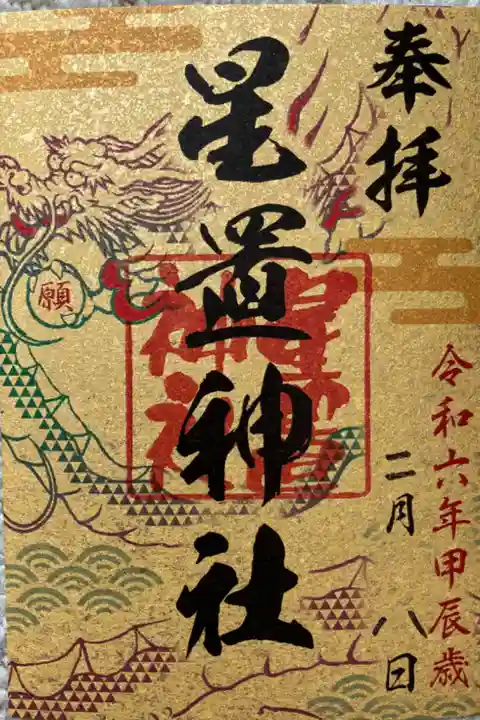 奉拝
令和六年甲辰歳
二月 八日
星置神社
願
星置神社